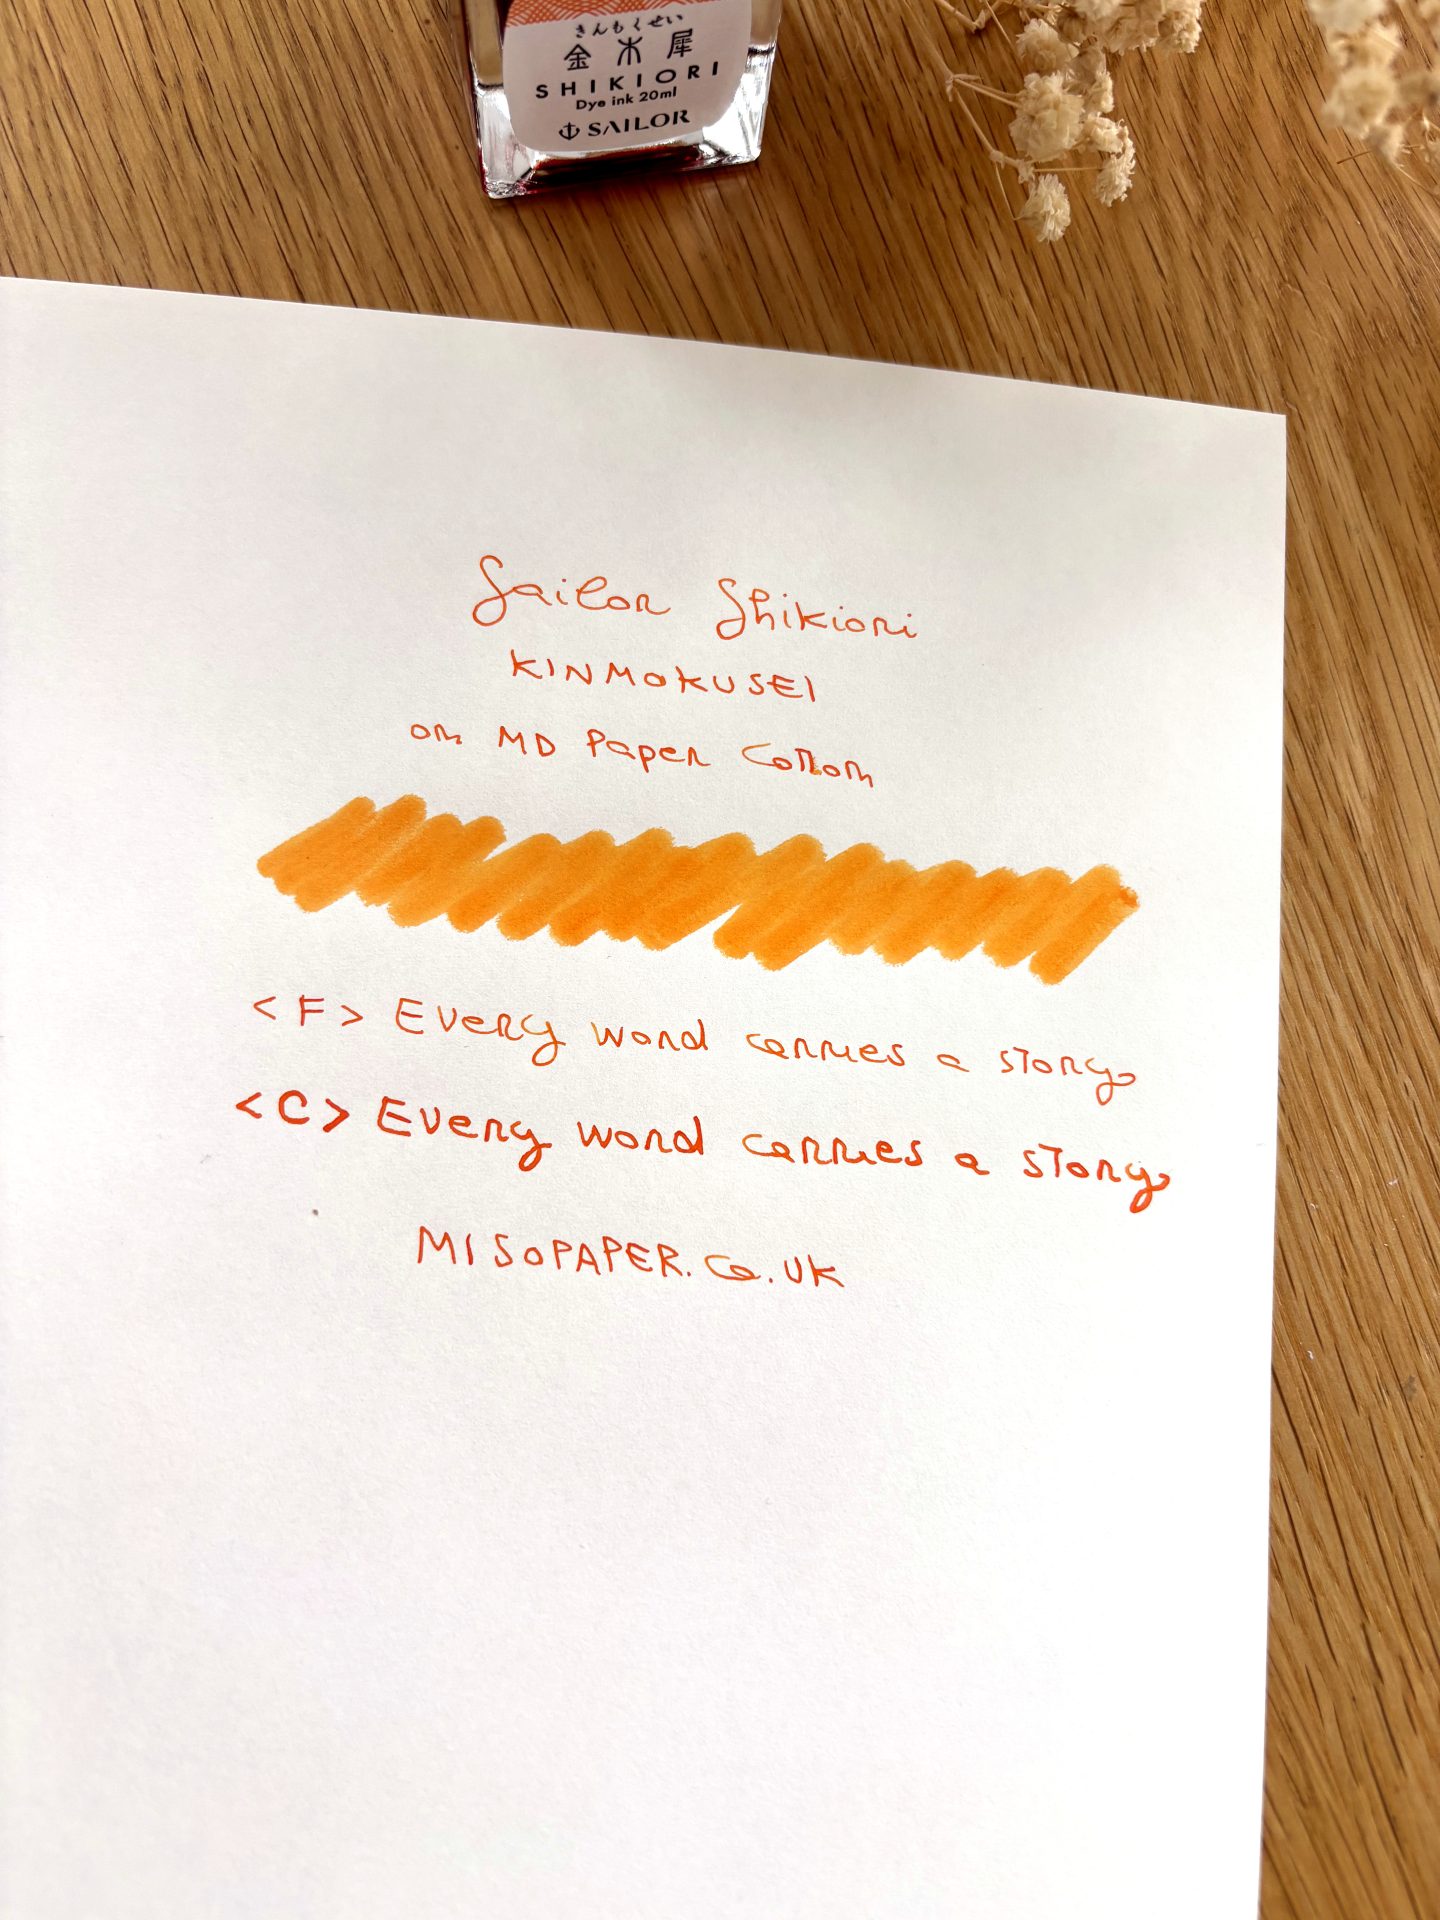 きんもくせい
金木犀
SHIKIORI
Dye ink 20ml
SAILOR
Sailor Shikiori
KINMOKUSEI
on MD Paper Cotton
<F> Every word carries a story
<C> Every word carries a story
MISOPAPER.co.uk